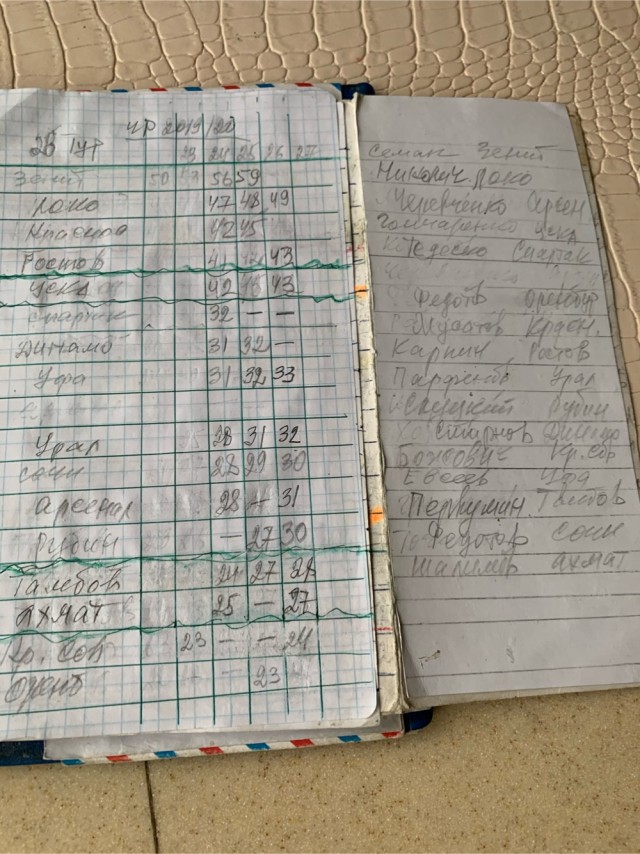 ЧР 2019/20
26 тур 23 24 25 26 27
Зенит 50 53 56 59
Локо 47 48 49
Краснод 42 45
Ростов 41 43
ЦСКА 42 43
Спартак 32 – –
Динамо 31 32 –
Уфа 31 32 33
Урал 28 31 32
Сочи 28 29 30
Арсенал 28 31
Рубин – 27 30
Тамбов 24 27 28
Ахмат 25 – 27
Кр. Сов 23 – – 24
Оренб 23
Семак Зенит
Николич Локо
Черевченко Арсен
Гончаренко ЦСКА
Тедеско Спартак
Федотов Оренбур
Мусаев Красн.
Карпин Ростов
Парфенов Урал
Слуцкий Рубин
Смирнов
Божович Кр. Сов
Евсеев Уфа
Первушин Тамбов
Федотов Сочи
Шалимов Ахмат